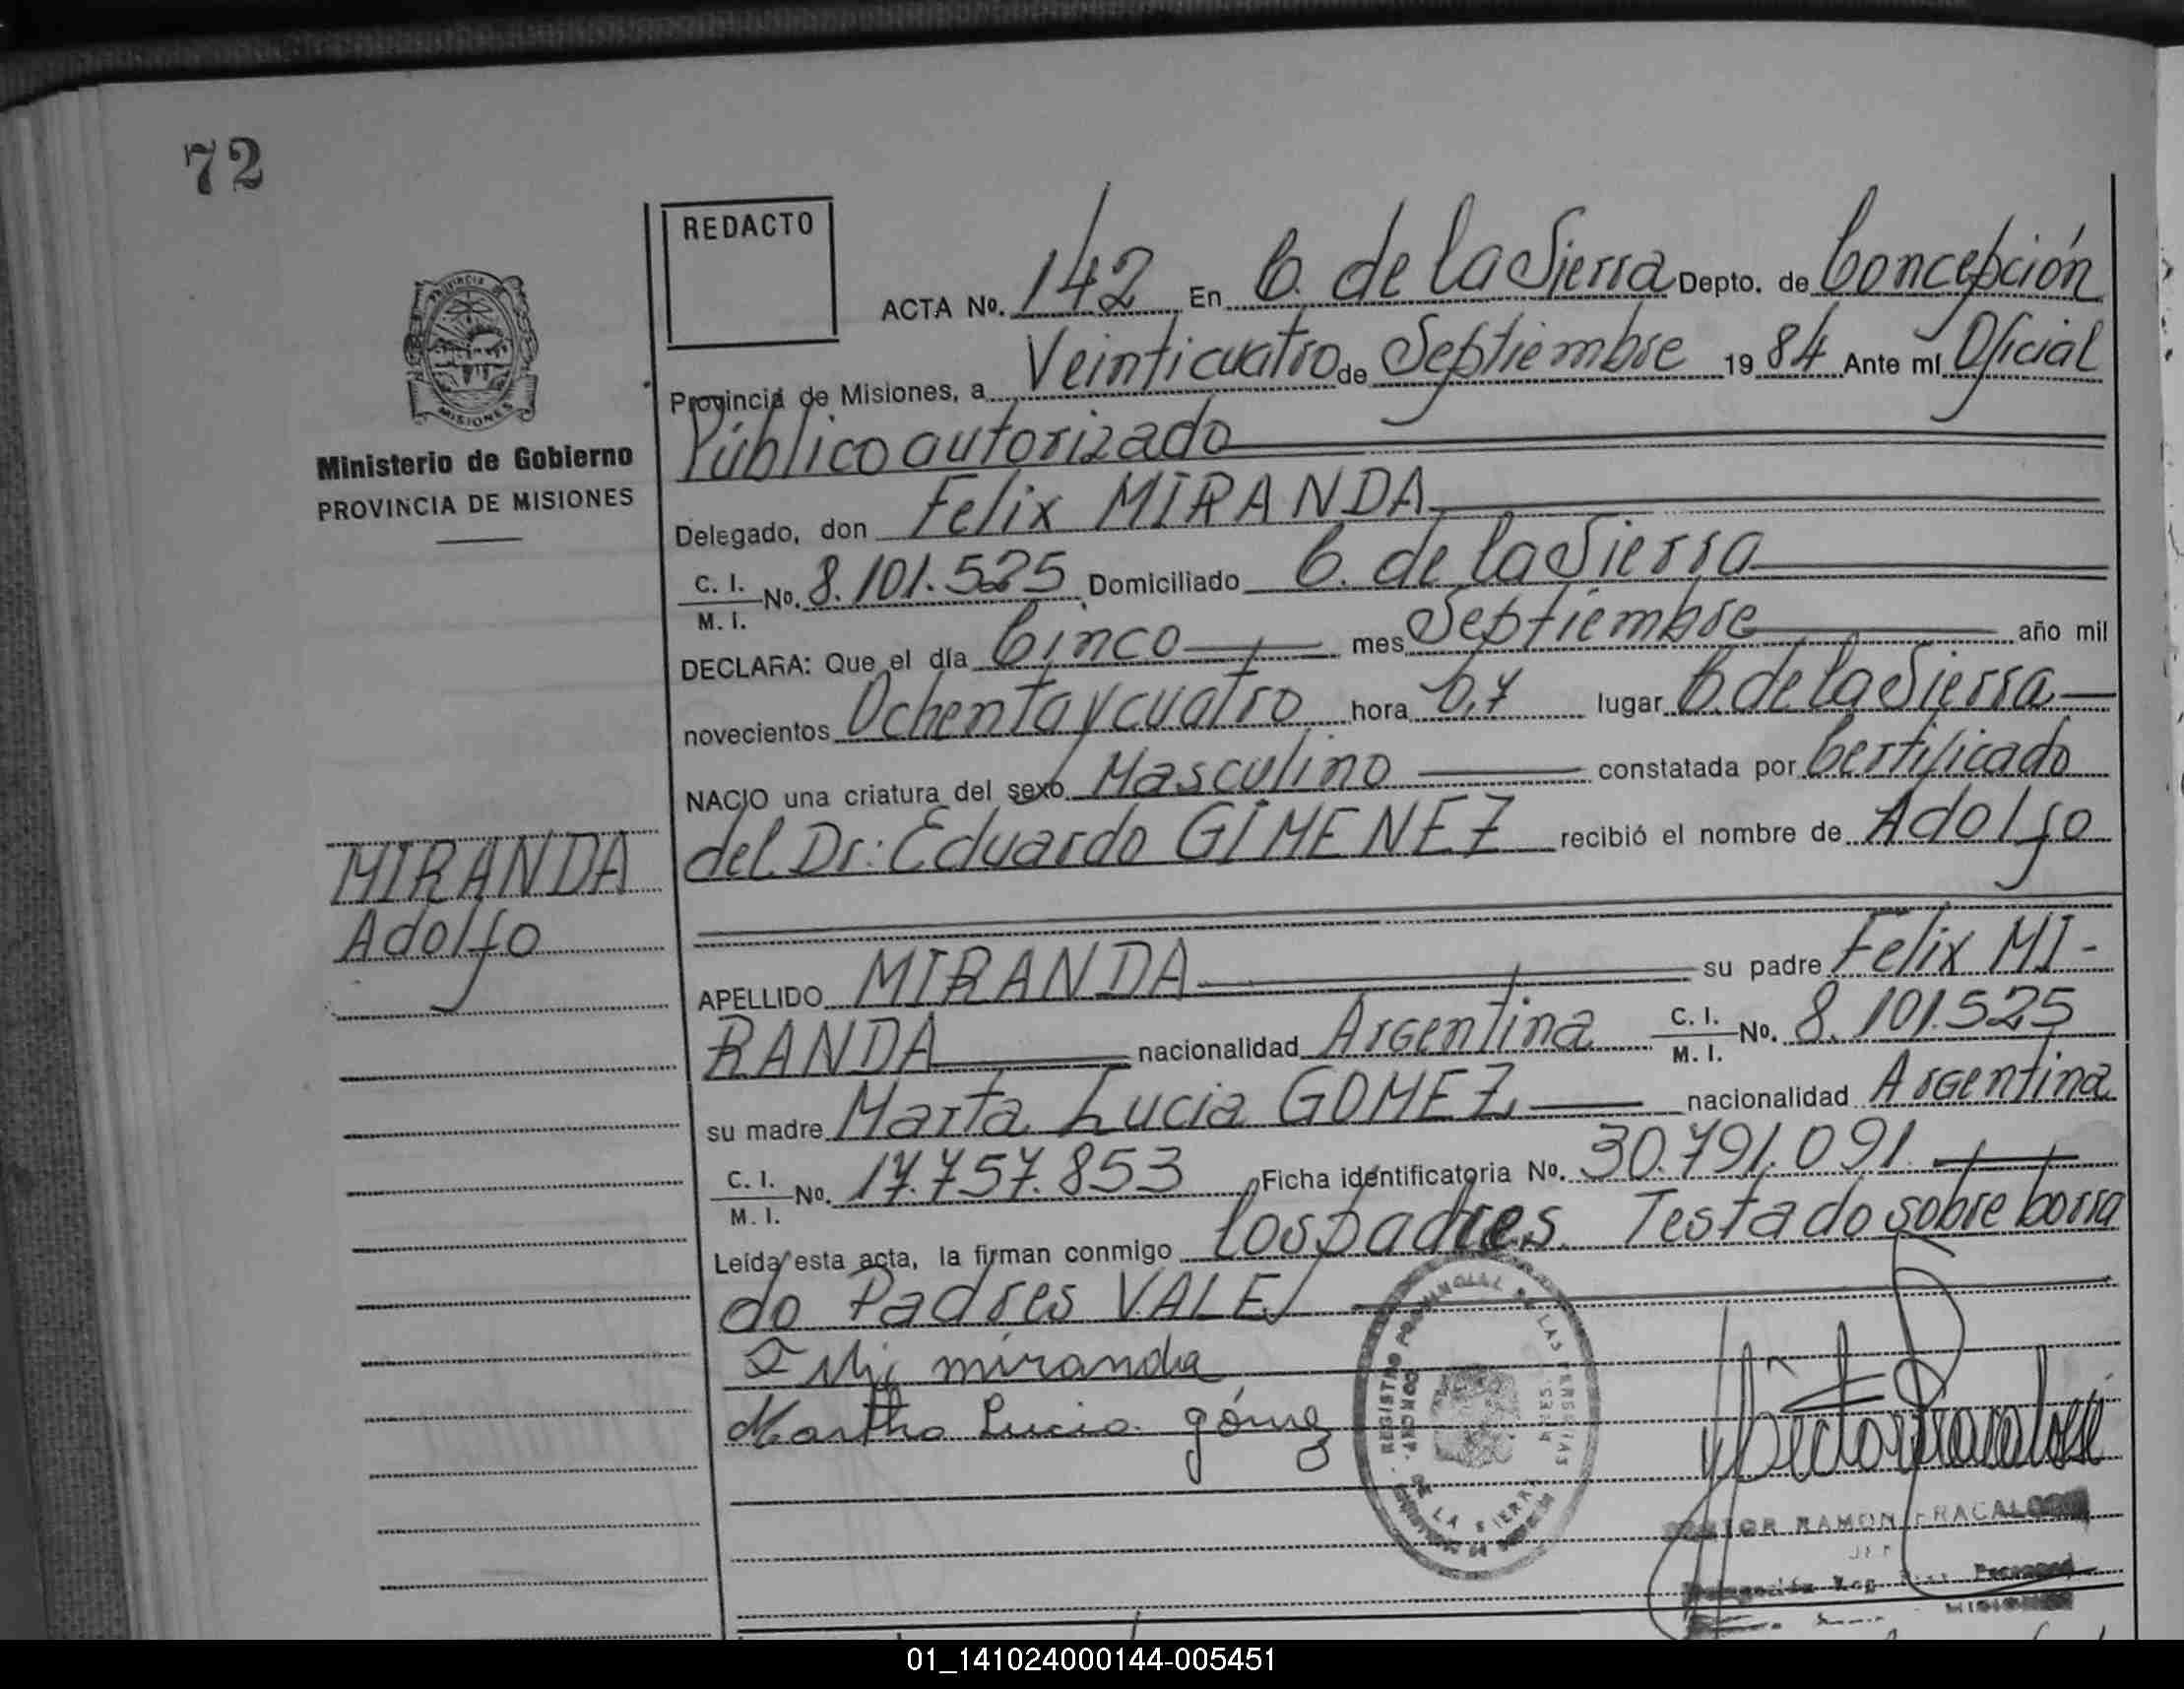 72
REDACTO
ACTA Nº. 142 En C. de la Sierra Depto. de Concepción
Provincia de Misiones, a Veinticuatro de Septiembre 1984 Ante mí Oficial
Público autorizado
PROVINCIA DE
MISIONES
Ministerio de Gobierno
PROVINCIA DE MISIONES
Delegado, don Felix MIRANDA
C. I.
M. I.
Nº. 8.101.525 Domiciliado C. de la Sierra
DECLARA: Que el día Cinco mes Septiembre año mil
novecientos Ochenta y cuatro hora 0,7 lugar C. de la Sierra
NACIO una criatura del sexo Masculino constatada por Certificado
del Dr: Eduardo GIMENEZ recibió el nombre de Adolfo
MIRANDA
Adolfo
APELLIDO MIRANDA su padre Felix MI-
RANDA nacionalidad Argentina C. I. M. I. Nº. 8.101.525
su madre Marta Lucia GOMEZ, nacionalidad Argentina
C. I.
M. I.
Nº. 17.757.853 Ficha identificatoria Nº. 30.791.091.
Leída esta acta, la firman conmigo los padres. Testado sobre borra
do Padres VALE
miranda
Martha Lucia gómez
REGISTRO PROVINCIAL DE LAS PERSONAS
DE LA SIERRA
RAMON FRACALOSSI
01_141024000144-005451